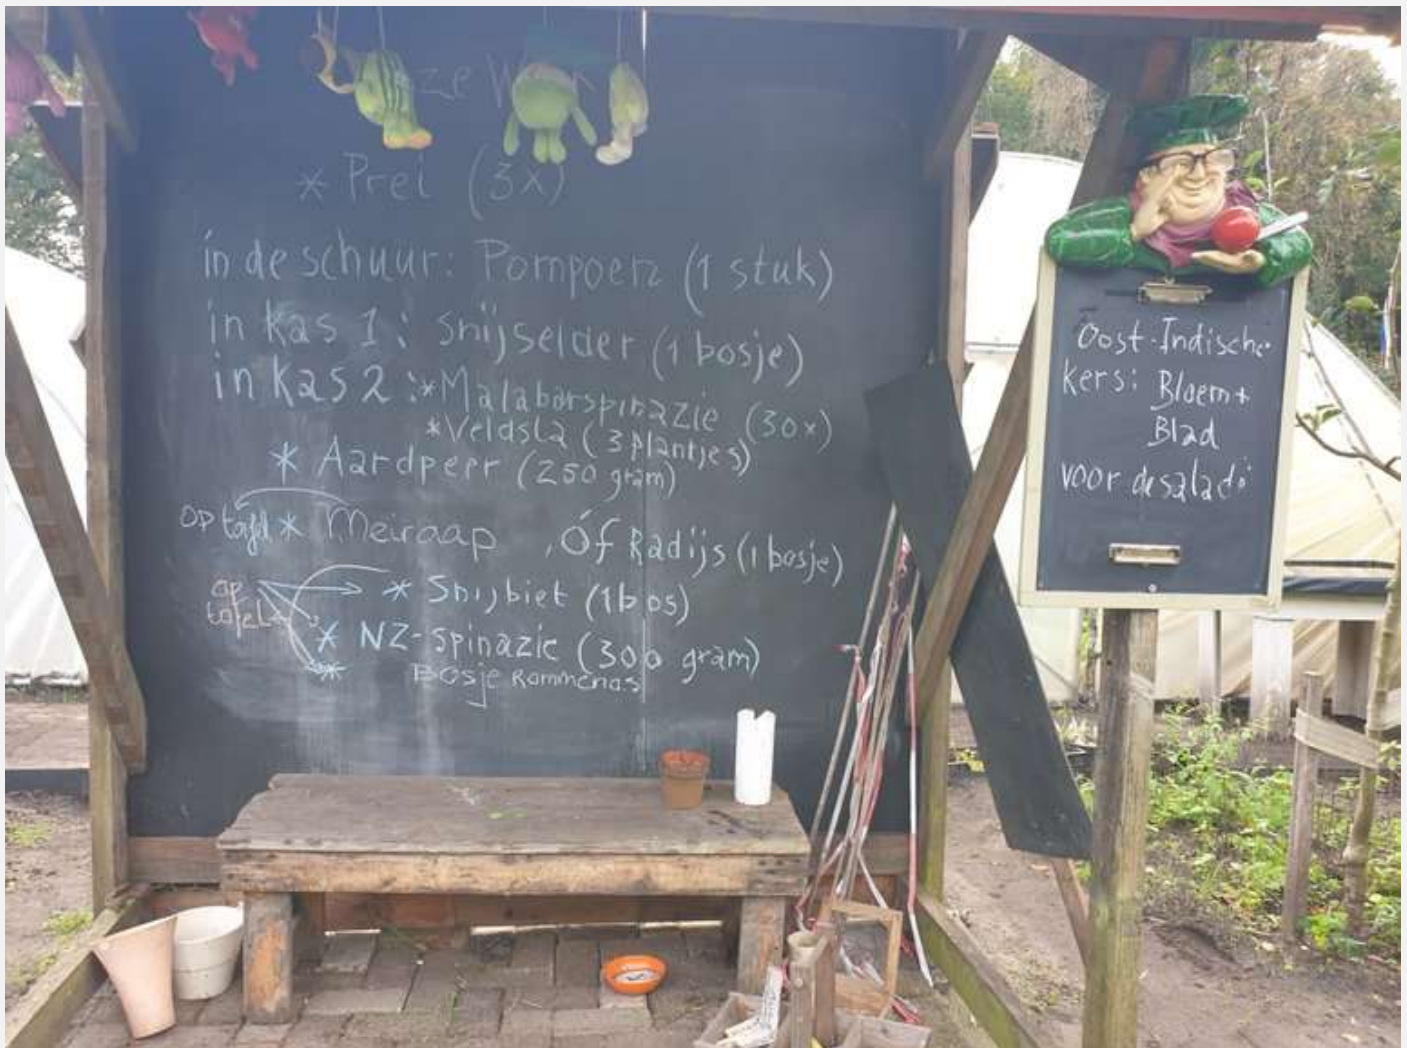 * Prei (3x)
in de schuur: Pompoen (1 stuk)
in kas 1: snijselder (1 bosje)
in kas 2: * Malabarspinazie (30x)
* Veldsla (3 plantjes)
* Aardpeer (250 gram)
op tafel * Meiraap , óf Radijs (1 bosje)
op * Snijbiet (1 bos)
tafel
* NZ-spinazie (300 gram)
* Bosje Rammenas
Oost-Indische
kers: Bloem +
Blad
voor de salade